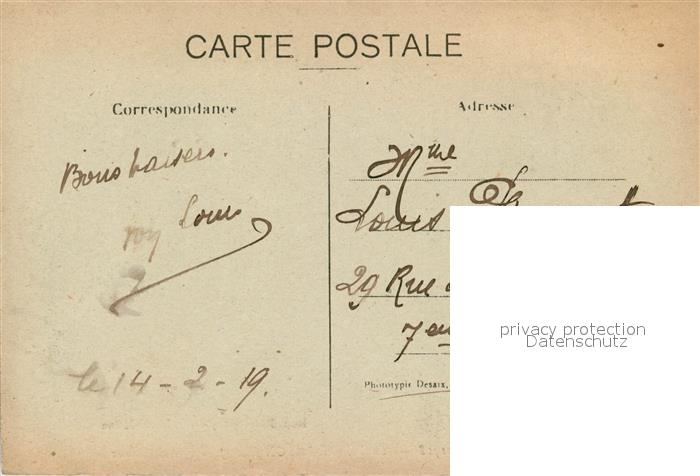 CARTE POSTALE
Correspondance
Adresse
Bons baisers.
Louis
le 14 - 2 - 19.
Mme
Louis
29 Rue
7em
Phototypie Desaix,
privacy protection
Datenschutz